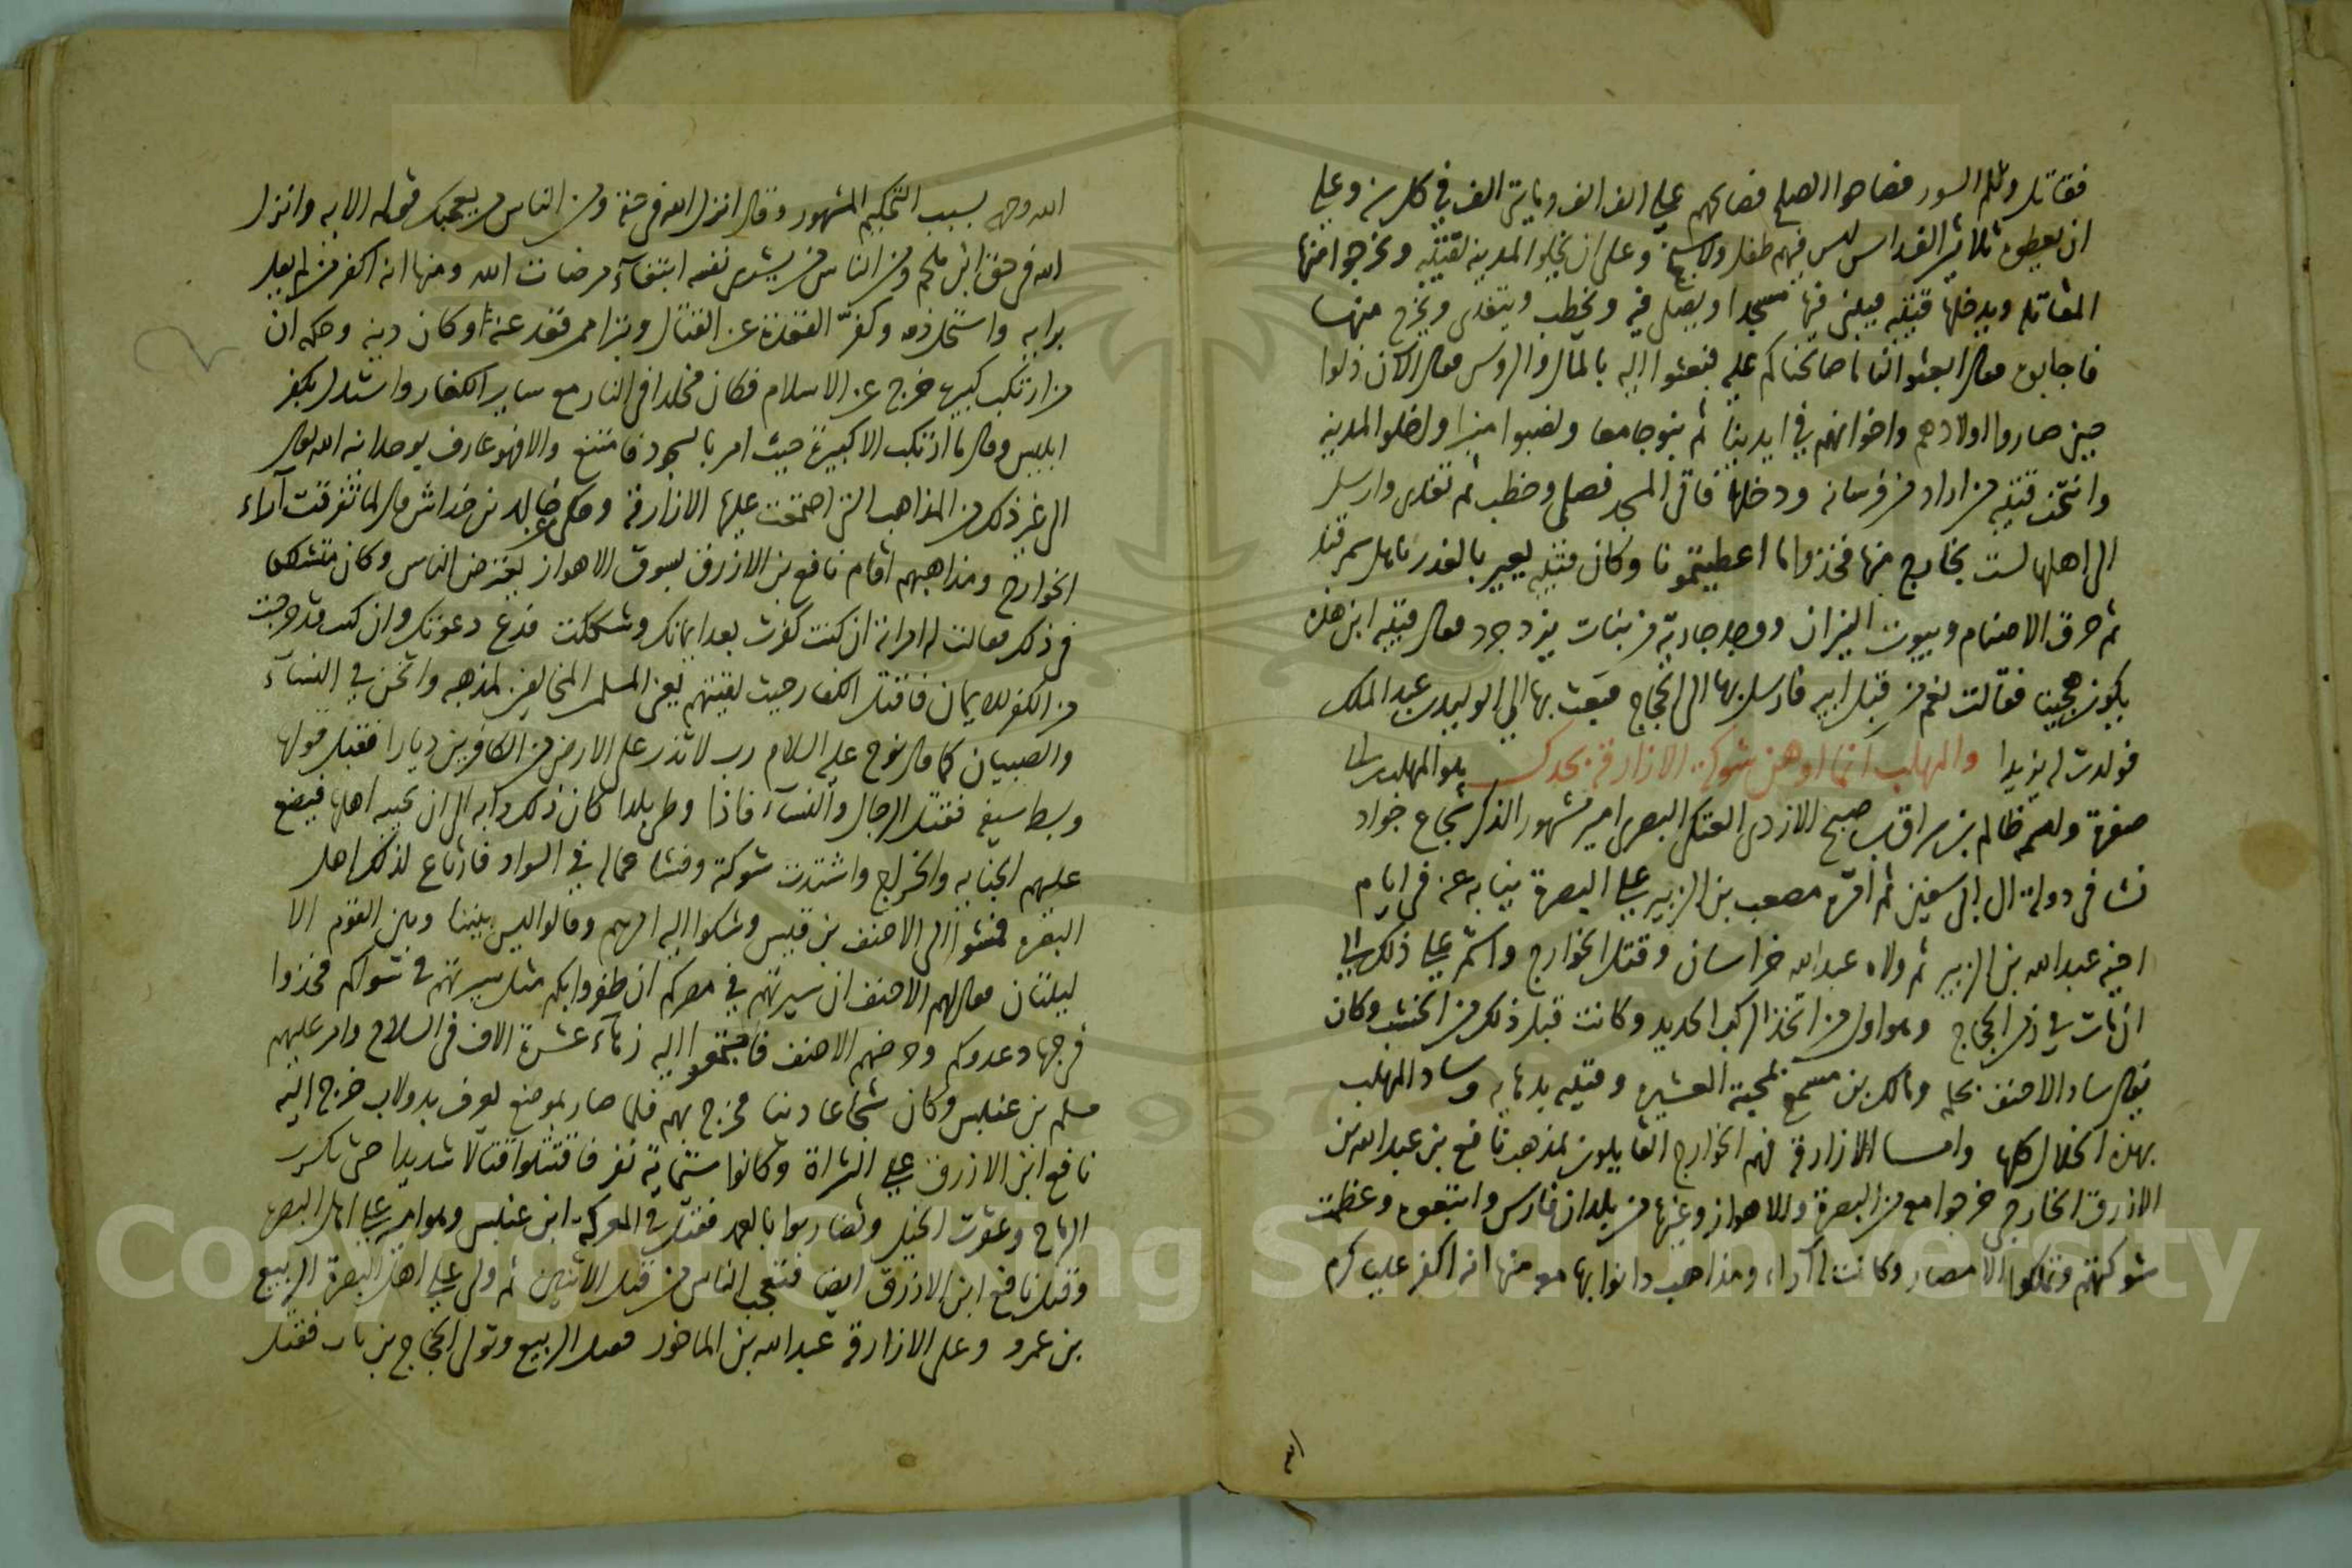 فقاتل وثلم السور فصاحوا الصلح فصالحهم على الف الف ومايتي الف في كل سنة وعلى
ان يعطوه ثلاثين الف راس ليس فيهم طفل ولا شيخ وعلى ان يخلوا المدينة لقتيبة ويخرجوا منها
المقاتلة ويدخلها قتيبة فيبنى فيها مسجدا ويصلى فيه ويخطب ويتغدى ويخرج منها
فاجابوه فقال ابعثوا الينا ما صالحناكم عليه فبعثوا اليه بالمال والروس فقال الان ذلوا
حين صاروا اولادهم واخوانهم في ايدينا ثم بنوا جامعا ونصبوا منبرا واخلوا المدينة
وانتخب قتيبة من اراد من فرسانه ودخلها فاتى المسجد فصلى وخطب ثم تغدى وارسل
الى اهلها لست بخارج منها فخذوا ما اعطيتمونا وكان قتيبة يعير بالغدر باهل سمرقند
ثم حرق الاصنام وبيوت النيران ووجد جارية من بنات يزدجرد فقال قتيبة ابن هذه
يكون هجينا فقالت نعم من قبل ابيه فارسل بها الى الحجاج فبعث بها الى الوليد بن عبد الملك
فولدت له يزيدا والمهلب انما اوهن شوكة الازارقة بجدك هو المهلب بن ابى
صفرة واسمه ظالم بن سراق بن صبح الازدى العتكى البصرى امير مشهور الذكر شجاع جواد
نشا فى دولة ال ابى سفين ثم امره مصعب بن الزبير على البصرة نيابة عنه فى ايام
اخيه عبد الله بن الزبير ثم ولاه عبد الله خراسان وقتال الخوارج واستمر على ذلك الى
ان مات في زمن الحجاج وهو اول من اتخذ الركب الحديد وكانت قبل ذلك من الخشب وكان
يقال ساد الاحنف بحلمه ومالك بن مسمع لمحبة العشيرة وقتيبة بدهايه وساد المهلب
بهذه الخلال كلها واما الازارقة فهم الخوارج القايلون بمذهب نافع بن عبد الله بن
الازرق الخارجى خرجوا معه من البصرة والاهواز وغيرها من بلدان فارس واتبعوه وعظمت
شوكتهم وتملكوا الامصار وكانت له آراء ومذاهب دانوا بها معه منها انه اكفر عليا كرم
الله وجهه بسبب التحكيم المشهور وقال انزل الله فى حقه ومن الناس من يعجبك قوله الاية وانزل
الله فى حق ابن ملجم ومن الناس من يشرى نفسه ابتغاء مرضات الله ومنها انه اكفر من لم يقل
برايه واستحل دمه وكفر القعدة عن القتال وتبرا ممن قعد عنه او كان دينه وحكم ان
من ارتكب كبيرة خرج عن الاسلام فكان مخلدا فى النار مع ساير الكفار واستدل بكفر
ابليس وقال ما ارتكب الا كبيرة حيث امر بالسجود فامتنع والا فهو عارف بوحدانية الله تعالى
الى غير ذلك من المذاهب التى اجتمعت عليها الازارقة وحكى خالد بن خداش قال لما تفرقت آراء
الخوارج ومذاهبهم اقام نافع بن الازرق بسوق الاهواز يعترض الناس وكان متشككا
فى ذلك فقالت له امراته ان كنت كفرت بعد ايمانك وشككت فدع دعوتك وان كنت قد خرجت
من الكفر للايمان فاقتل الكفار حيث لقيتهم يعنى المسلمين المخالفين لمذهبه واثخن في النساء
والصبيان كما قال نوح عليه السلام رب لا تذر على الارض من الكافرين ديارا فقبل قولها
وبسط سيفه فقتل الرجال والنساء فاذا وطى بلدا كان ذلك دابه الى ان يجيبه اهلها فيضع
عليهم الجباية والخراج واشتدت شوكته وفشا عماله في السواد فارتاع لذلك اهل
البصرة فمشوا الى الاحنف بن قيس وشكوا اليه امرهم وقالوا ليس بيننا وبين القوم الا
ليلتان فقال لهم الاحنف ان سيرتهم في مصركم ان ظفروا بكم مثل سيرتهم فى سوادكم فخذوا
فى جهاد عدوكم وحرضهم الاحنف فاجتمعوا اليه زهاء عشرة الاف فى السلاح وامر عليهم
مسلم بن عنبس وكان شجاعا دينا فخرج بهم فلما صار بموضع يعرف بدولاب خرج اليه
نافع ابن الازرق على الشراة وكانوا ستماية نفر فاقتتلوا قتالا شديدا حتى تكسرت
الرماح وعقرت الخيل وتضاربوا بالعمد فقتل في المعركة ابن عنبس وهو امير على اهل البصرة
وقتل نافع ابن الازرق ايضا فتعجب الناس من قتل الاثنين ثم ولى على اهل البصرة الربيع
بن عمرو وعلى الازارقة عبد الله بن الماخور فقتل الربيع وتولى الحجاج بن باب فقتل
Copyright © King Saud University
1957